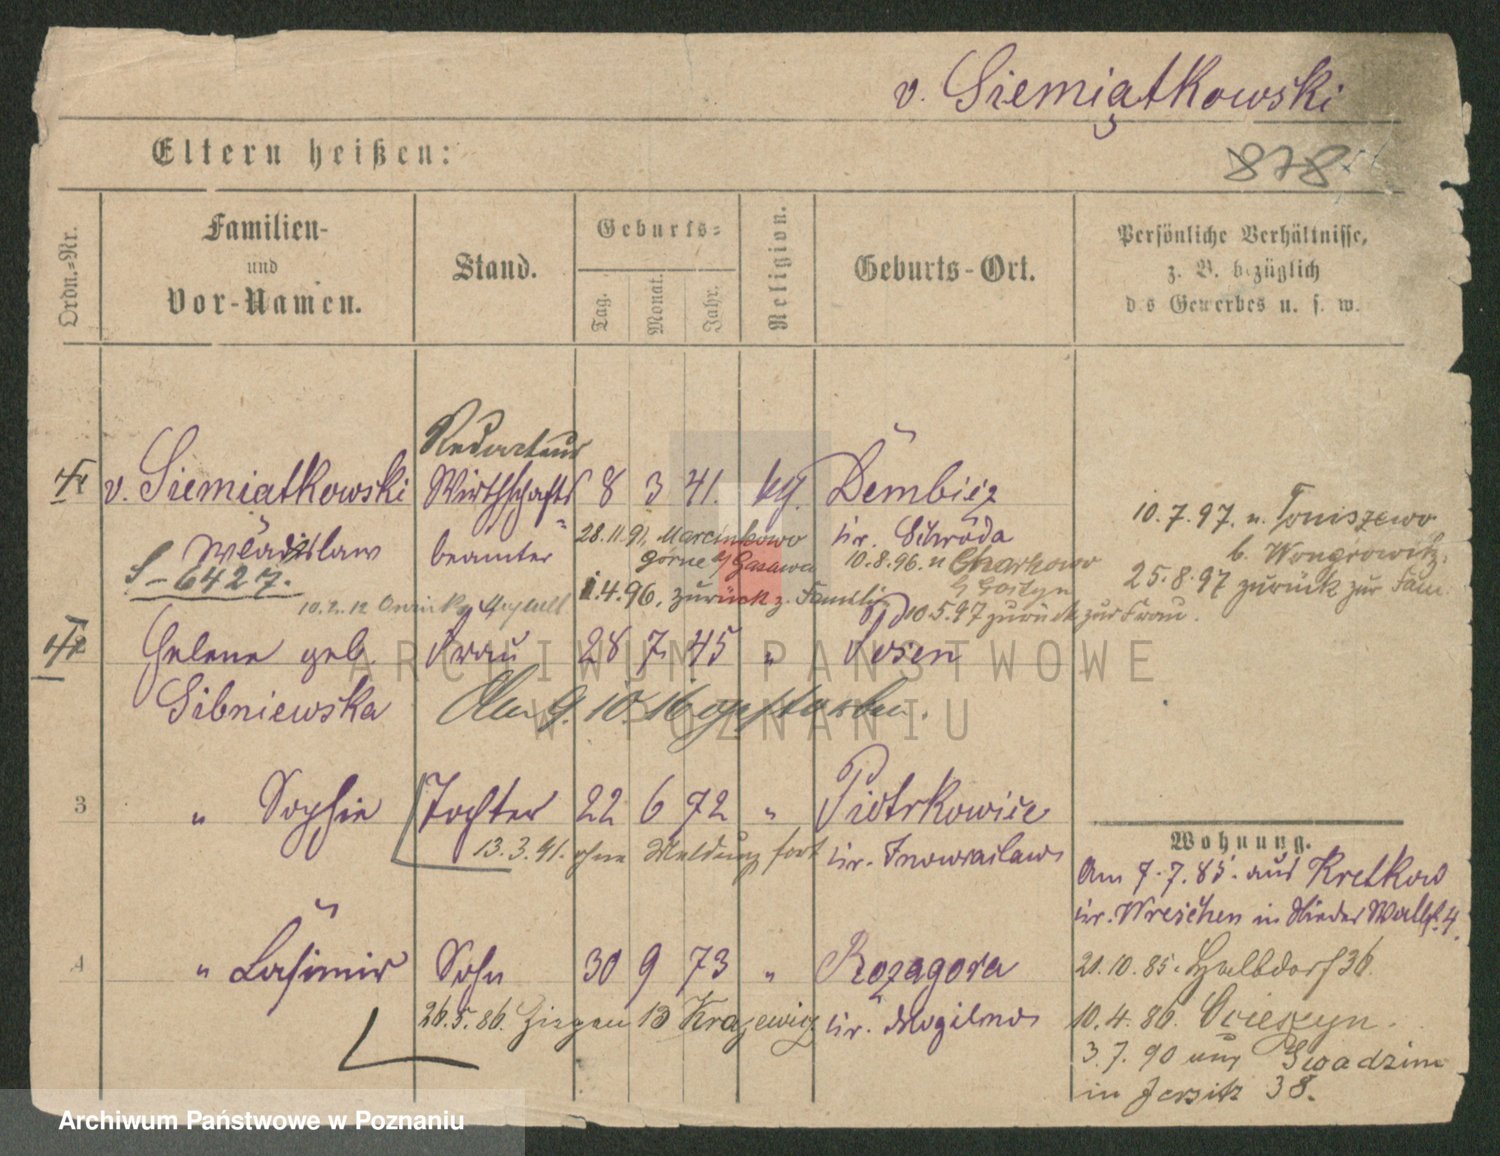 v. Siemiątkowski
878
Eltern heißen:
Ordn.-Nr.
Familien-
und
Vor-Namen.
Stand.
Geburts-
Tag.
Monat.
Jahr.
Religion.
Geburts-Ort.
Persönliche Verhältnisse,
z. B. bezüglich
des Gewerbes u. s. w.
Redacteur
v. Siemiątkowski Wirthschafts 8 3 41. kg. Dembicz
Wladislaw beamter Kr. Schroda
28.11.91. Marcinkowo
gorne b/ Gasawa
10.8.96. n
10.7.97. n. Toniszewo
b. Wongrowitz.
S-6427.
1.4.96. zurück z. Familie
25.8.97 zurück zur Fam.
10.5.97 zurück zur Frau.
Helene geb. Frau 28 7. 45 " Posen
Sibniewska
Am 9. 10. 16 gestorben.
3 " Sophie Tochter 22 6 72 " Piotrkowice
13.3.91. ohne Meldung fort Kr. Inowrazlaw
Wohnung.
Am 7.7.85. aus Kretkow
Kr. Wreschen in Nieder Wallst. 4.
4 " Kasimir Sohn 30 9 73 " Rozagora
26.5.86. Kr. Mogilno
21.10.85. Halbdorf 36.
10.4.86.
3.7.90 Gwadzim
in Jersitz 38.
ARCHIWUM PAŃSTWOWE
W POZNANIU
Archiwum Państwowe w Poznaniu